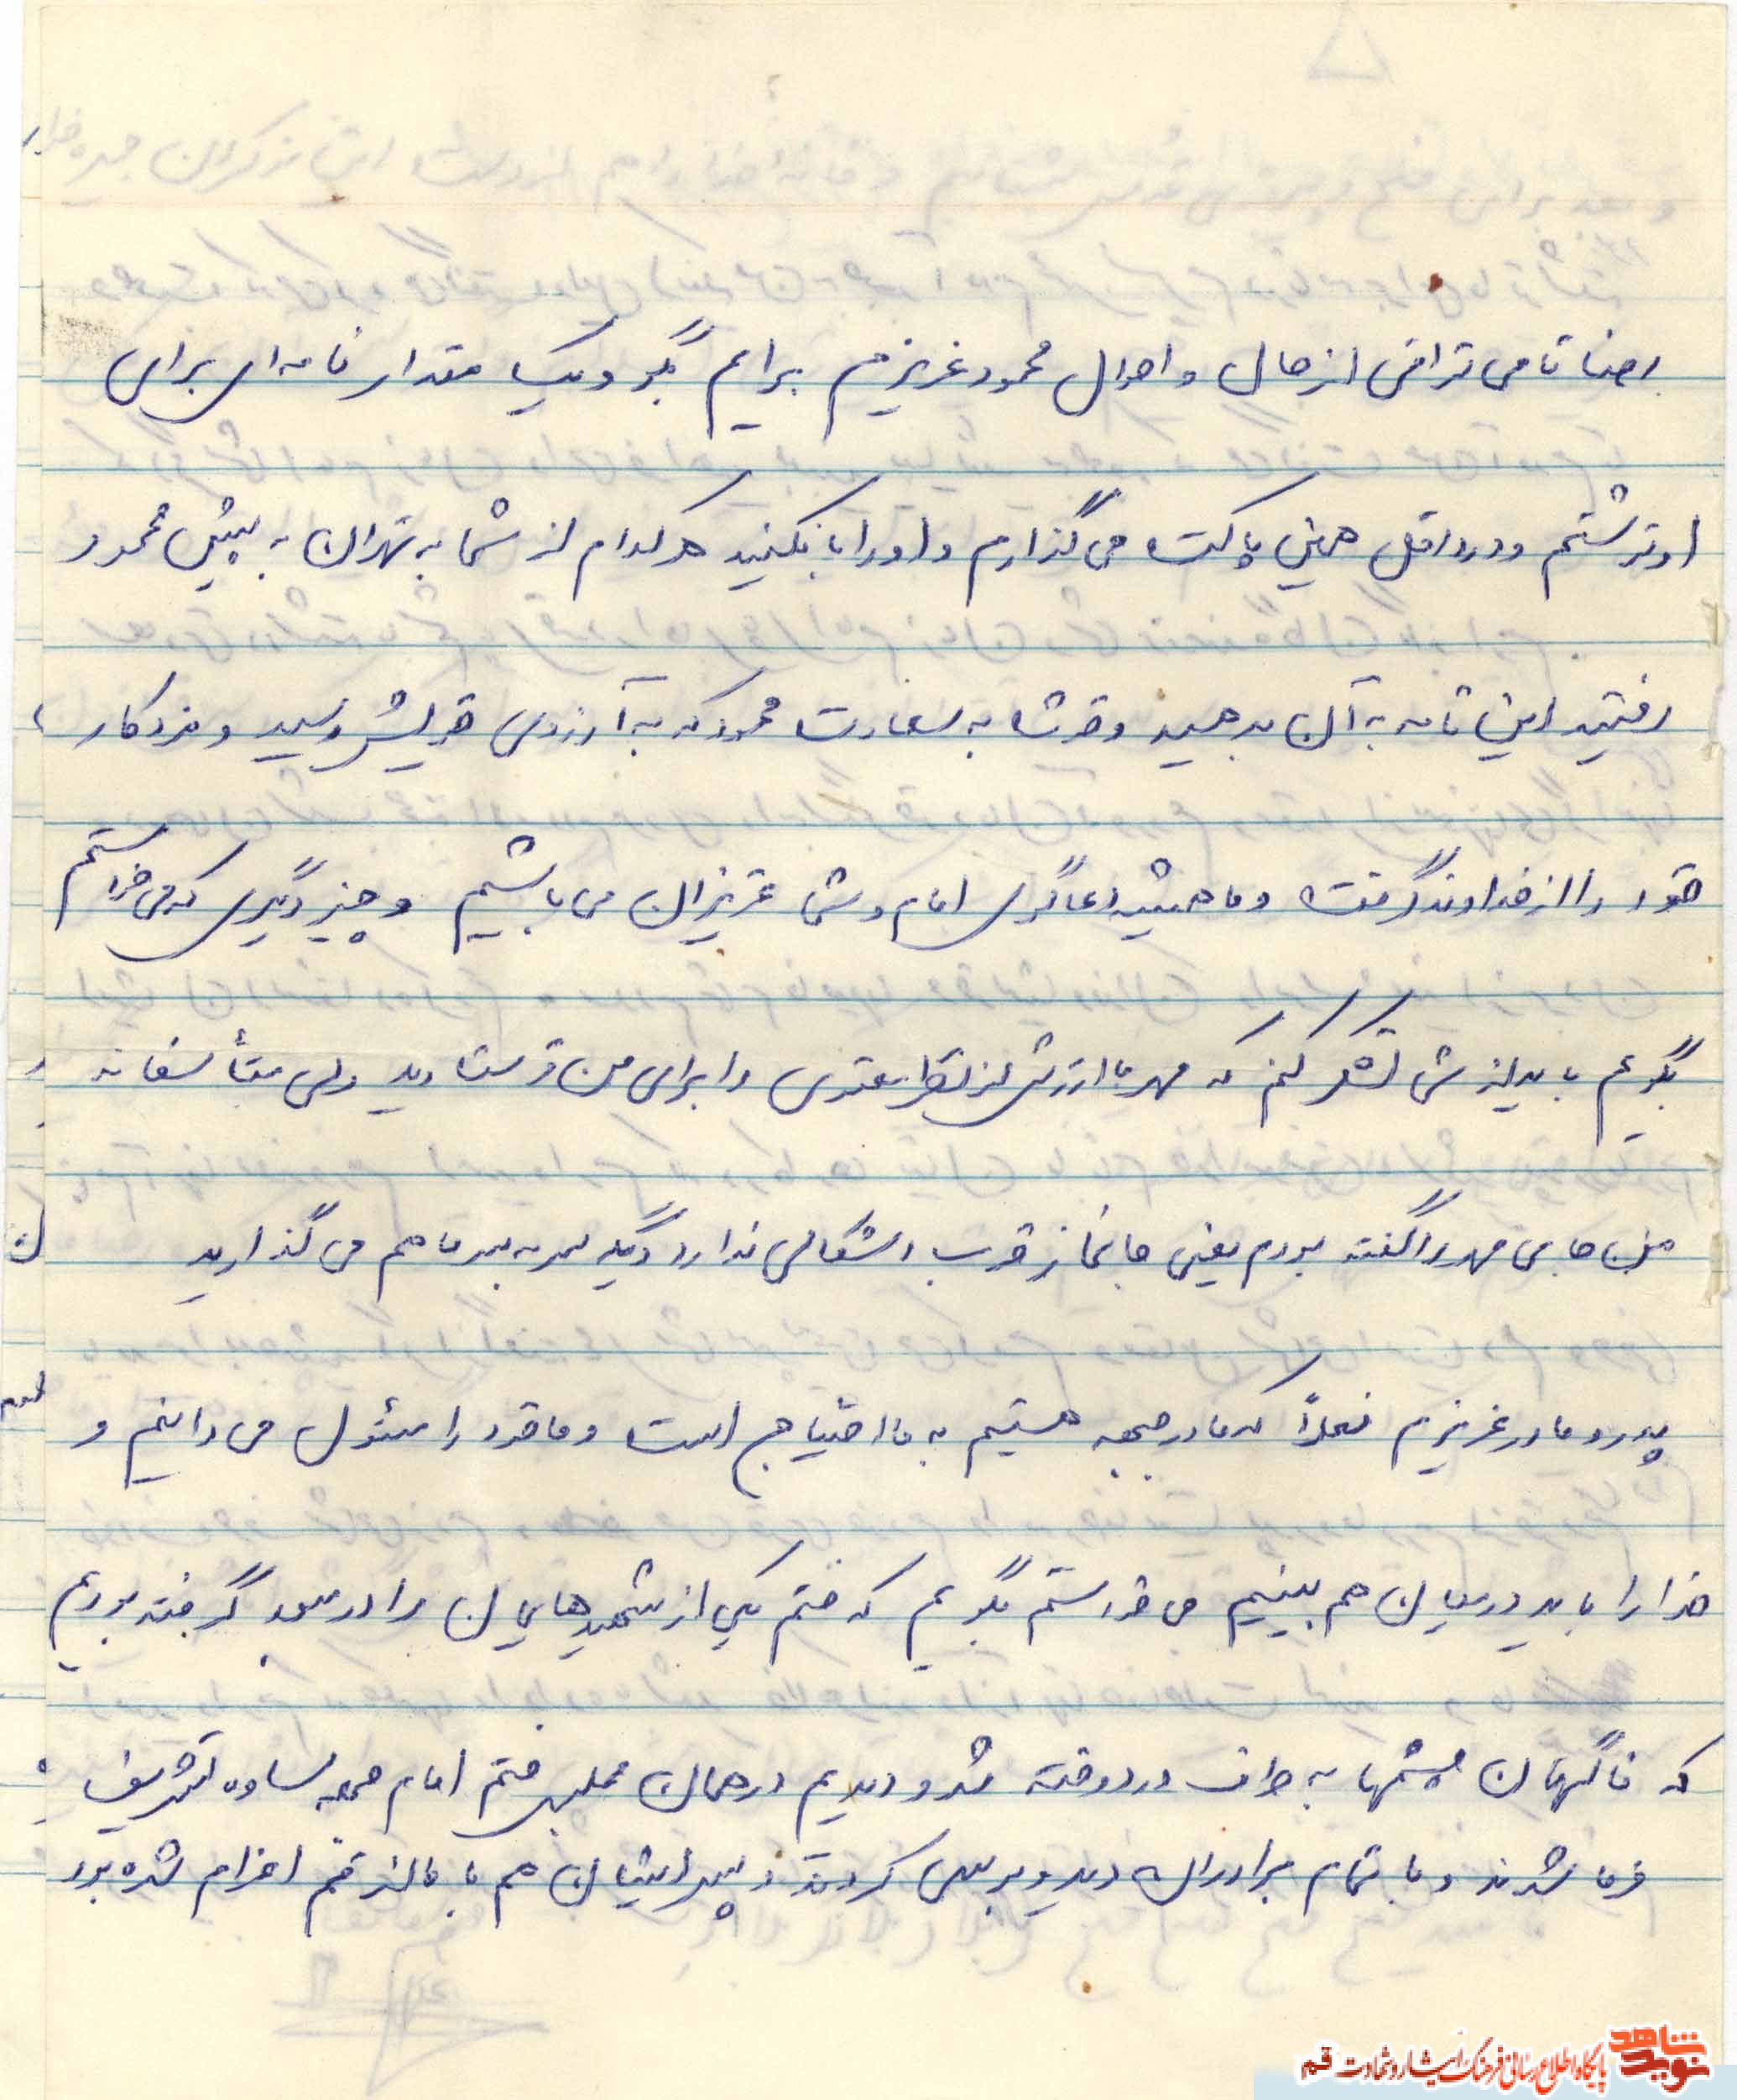 رضا تا می توانی از حال و احوال محمود عزیزم برایم بگو و یک مقدار نامه ای برای
او نوشتم و در داخل همین پاکت می گذارم و او را باز نکنید هر کدام از شما به تهران به پیش محمود
رفتید این نامه به آن بدهید و خوشا به سعادت محمود که به آرزوی خویش رسید و مزد کار
خود را از خداوند گرفت و ما همیشه دعاگوی امام و شما عزیزان می باشیم و چیز دیگری که می خواستم
بگویم باید از شما تشکر کنم که مهر با ارزش از نظر معنوی را برای من فرستادید ولی متأسفانه
من جای مهر را گفته بودم یعنی جانماز خوب اشکالی ندارد دیگه سر به سر ما هم می گذارید
پدر و مادر عزیزم فعلاً که ما در جبهه هستیم به ما احتیاج است و ما خود را مسئول می دانیم و
خدا را باید در میان هم ببینیم می خواستم بگویم که ختم یکی از شهیدهایمان را در مسجد گرفته بودیم
که ناگهان چشمها به طرف در دوخته شد و دیدیم در همان مجلس ختم امام جمعه ساوه تشریف
فرما شدند و با تمام برادران دید و بوسی کردند و پسر ایشان هم با ما از قم اعزام شده بود
نوید شاهد
پایگاه اطلاع رسانی فرهنگ ایثار و شهادت قم